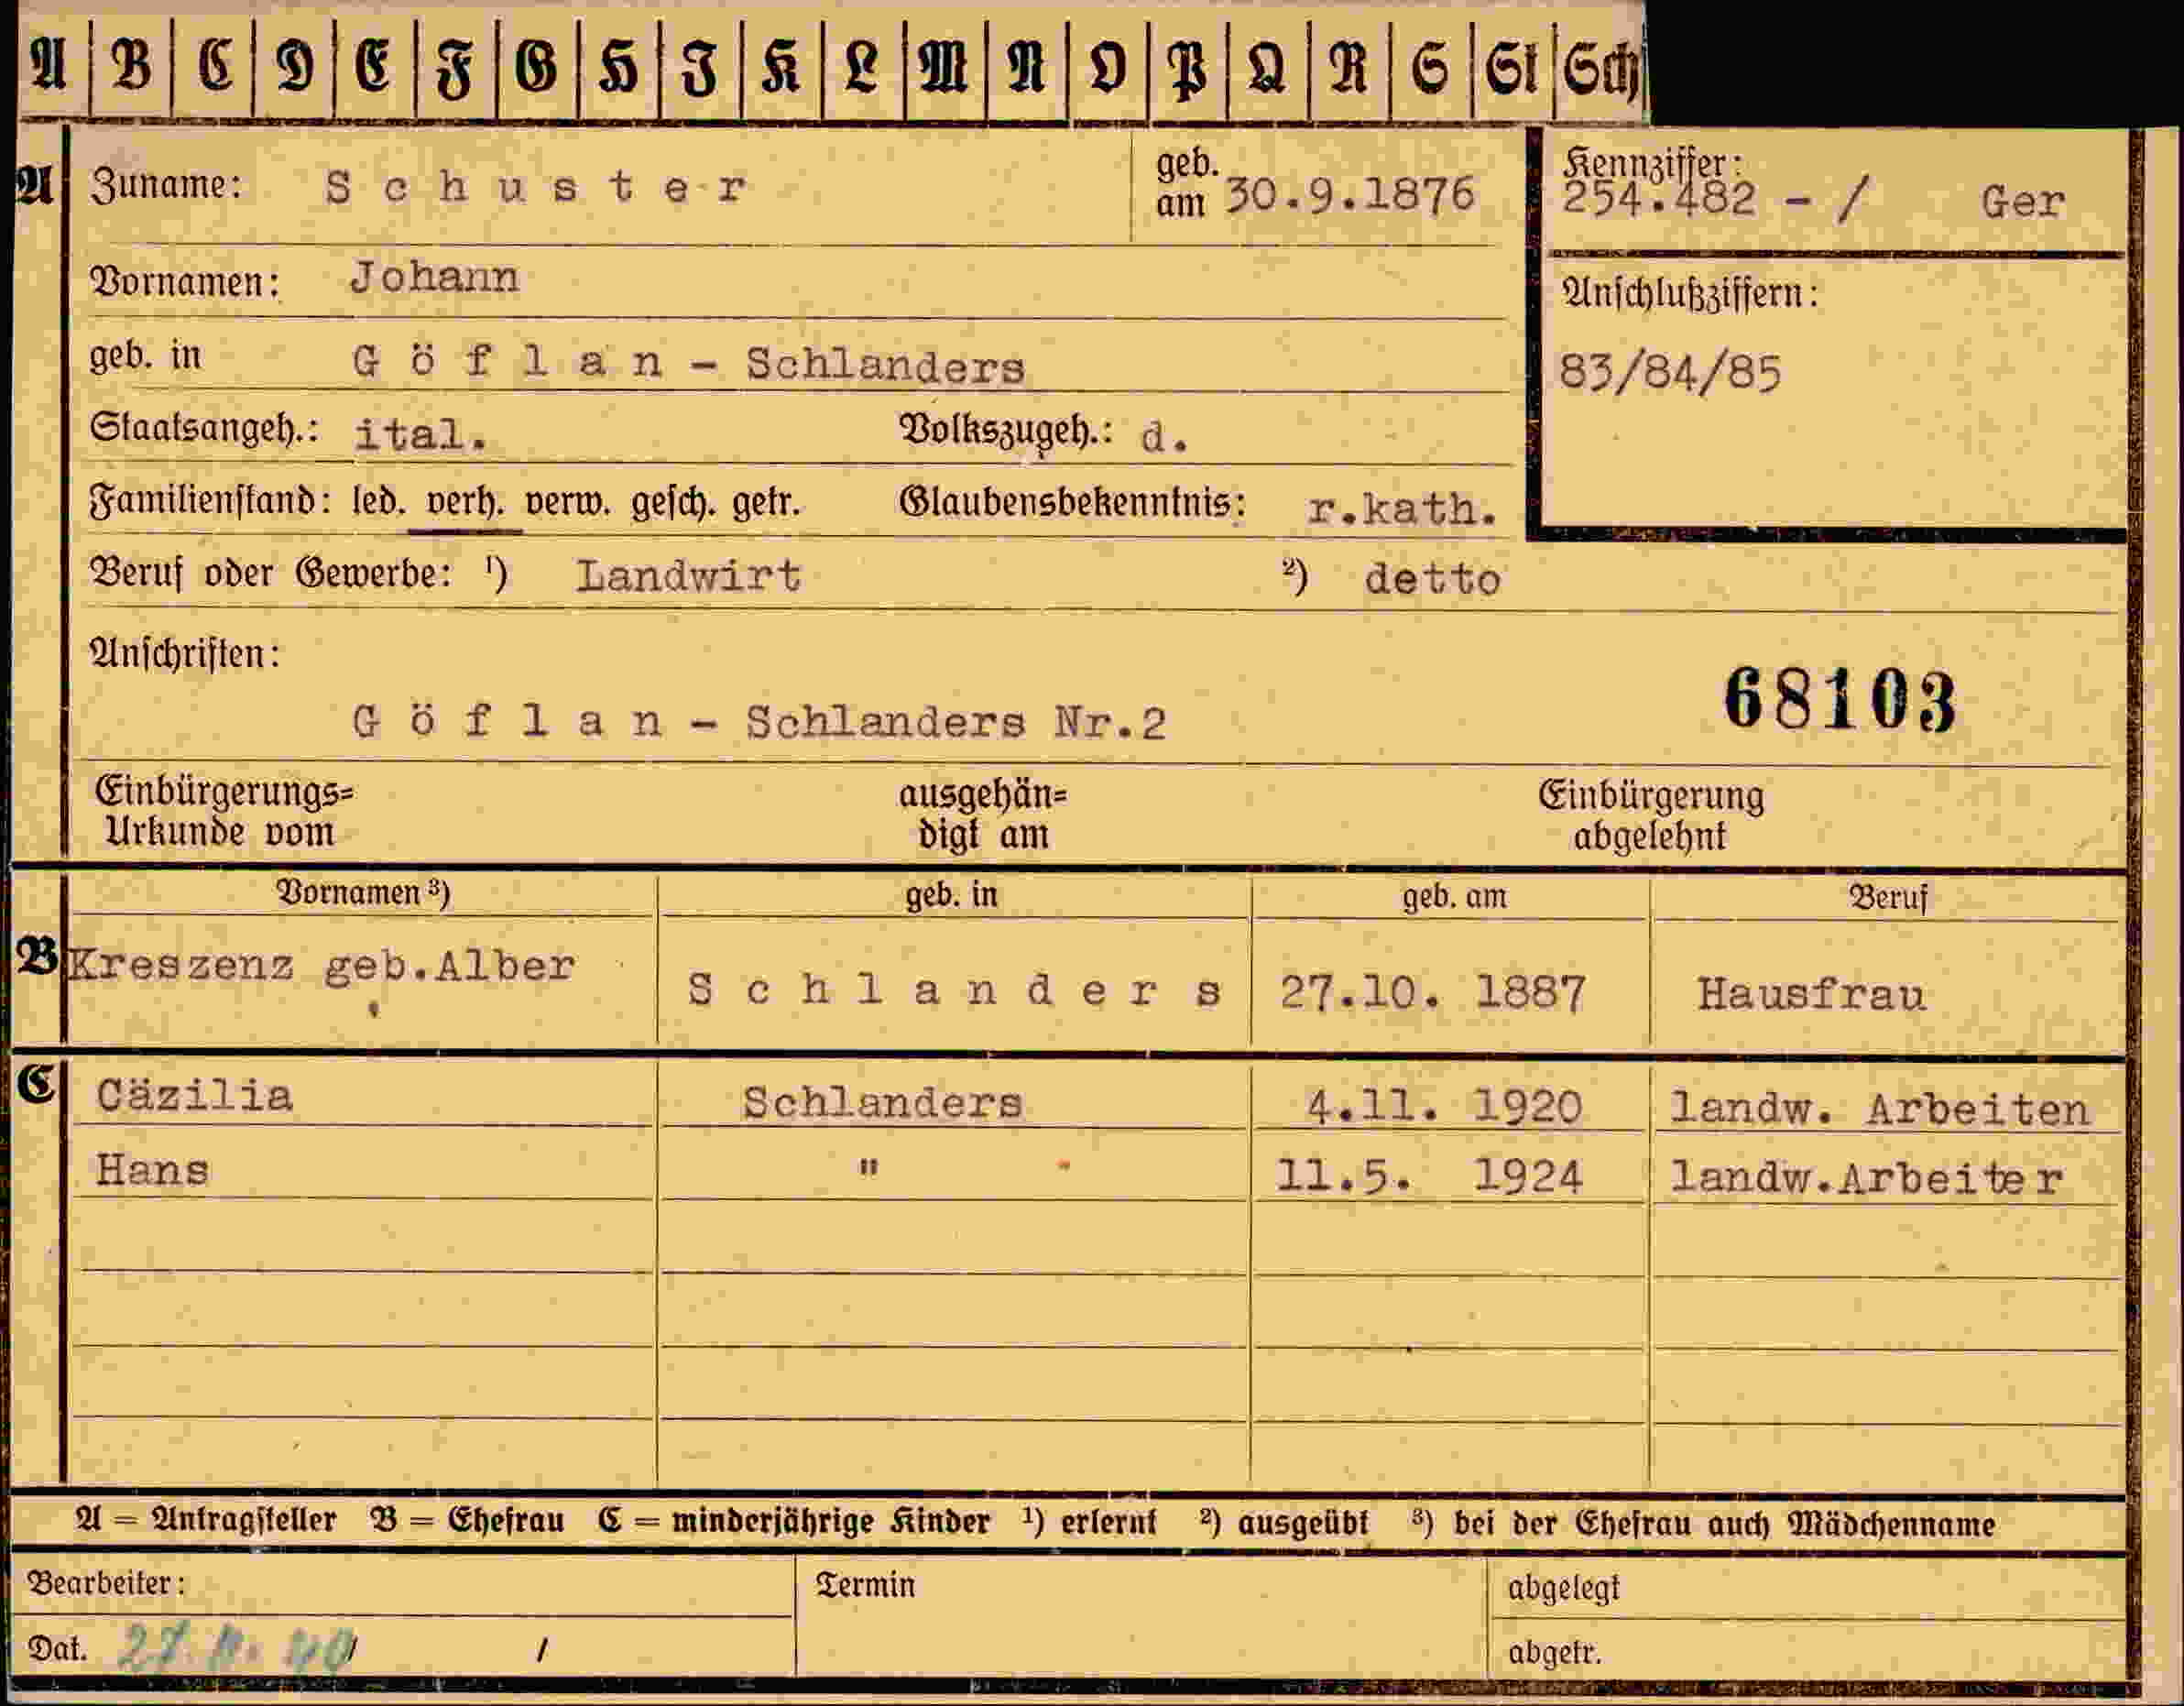 A B C D E F G H I K L M N O P Q R S St Sch
A Zuname: Schuster geb. am 30.9.1876
Kennziffer: 254.482 - / Ger
Vornamen: Johann
Anschlußziffern:
geb. in Göflan - Schlanders
83/84/85
Staatsangeh.: ital. Volkszugeh.: d.
Familienstand: led. verh. verw. gesch. getr. Glaubensbekenntnis: r.kath.
Beruf oder Gewerbe: ¹) Landwirt ²) detto
Anschriften:
68103
Göflan - Schlanders Nr.2
Einbürgerungs= ausgehän= Einbürgerung
Urkunde vom digt am abgelehnt
Vornamen ³) geb. in geb. am Beruf
B Kreszenz geb.Alber Schlanders 27.10. 1887 Hausfrau
C Cäzilia Schlanders 4.11. 1920 landw. Arbeiten
Hans " 11.5. 1924 landw.Arbeiter
A = Antragsteller B = Ehefrau C = minderjährige Kinder ¹) erlernt ²) ausgeübt ³) bei der Ehefrau auch Mädchenname
Bearbeiter: Termin abgelegt
Dat. / abgetr.